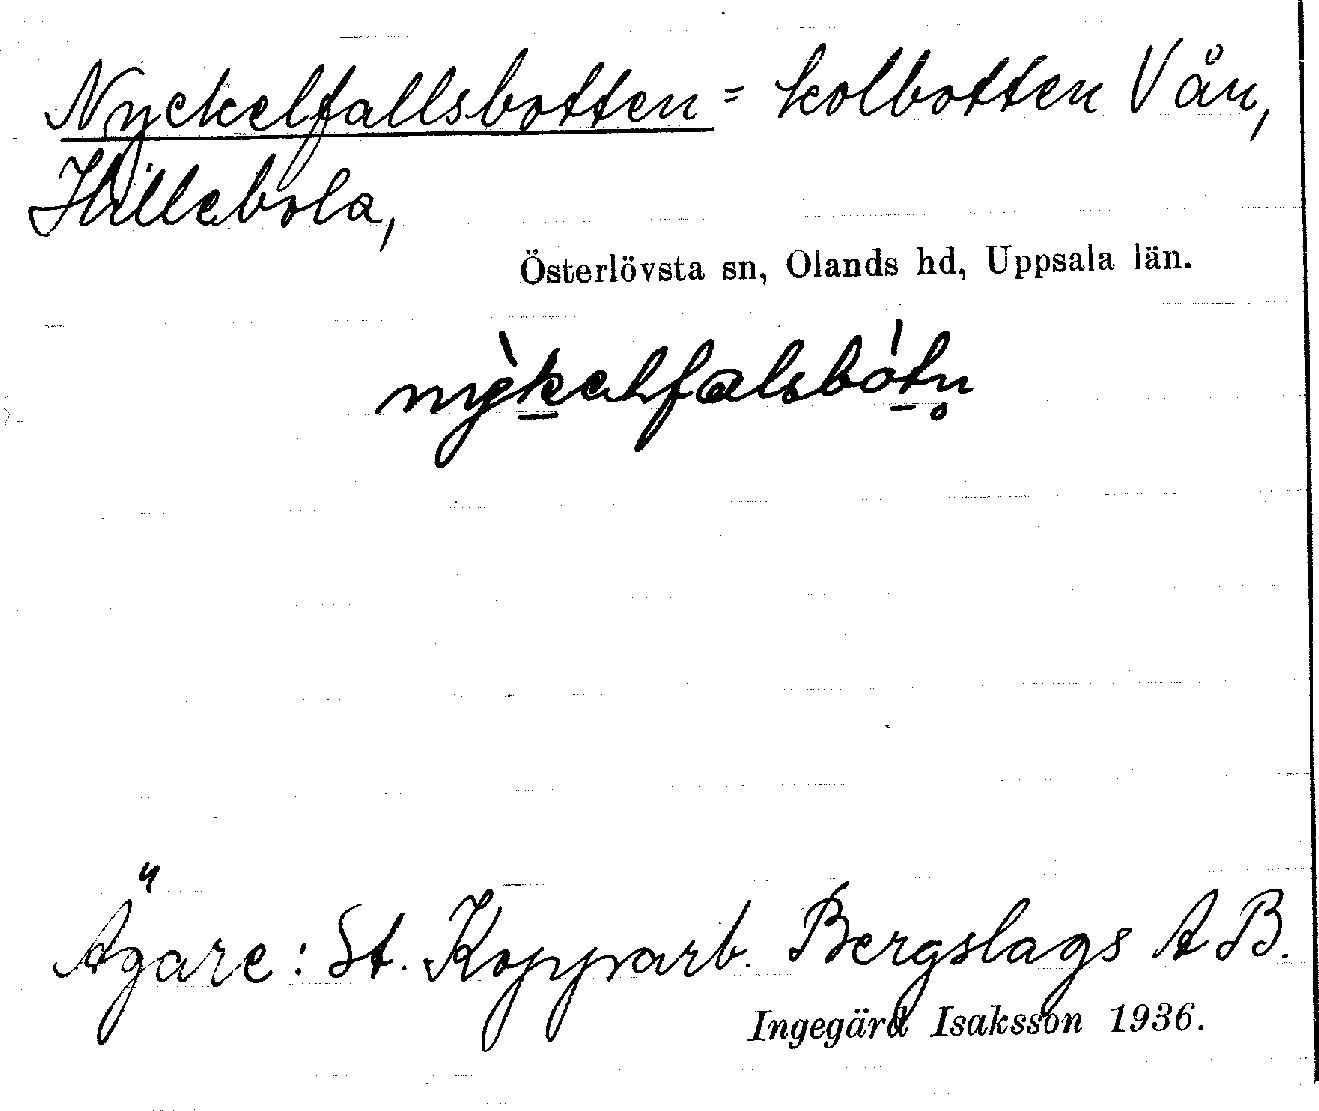 Nyckelfallsbotten = kolbotten V ån,
Hillebola,
Österlövsta sn, Olands hd, Uppsala län.
nỳkelfalsbótn̥
Ägare: St. Kopparb. Bergslags AB.
Ingegärd Isaksson 1936.